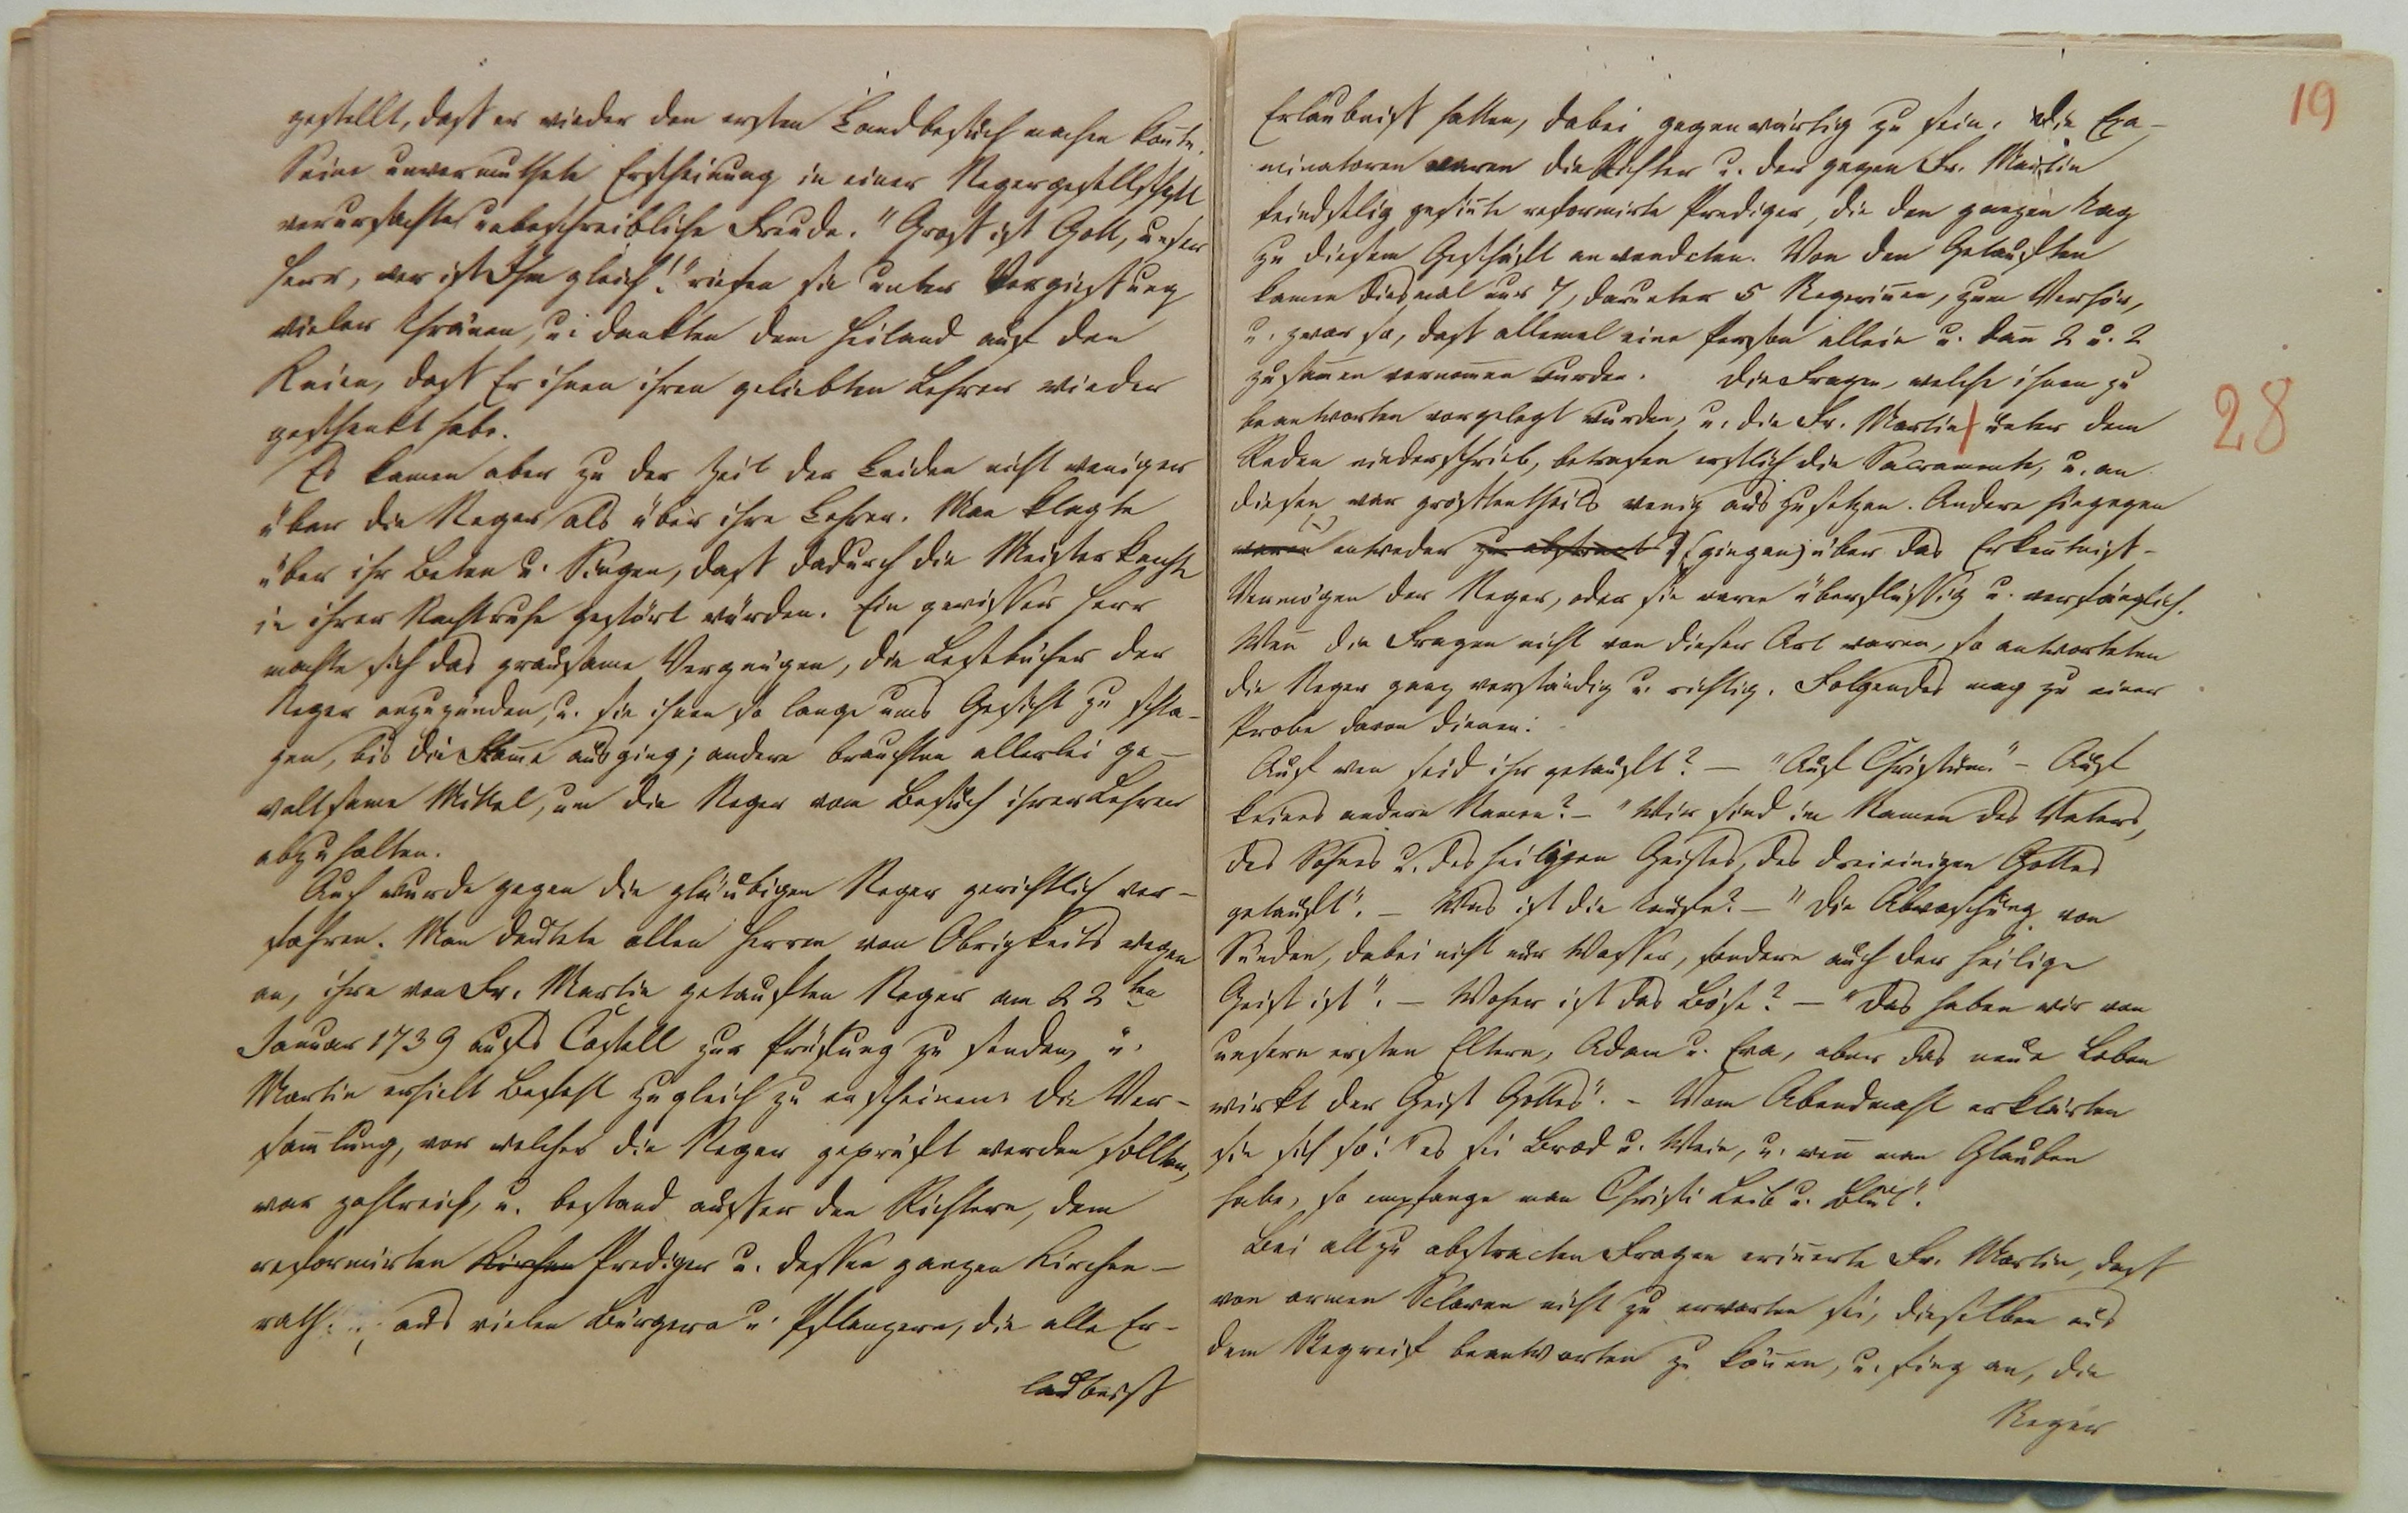 gestellt, daß er wieder den ersten Landbesuch machen konnte.
Seine unvermuthete Erscheinung in einer Negergesellschaft
verursachte unbeschreibliche Freude. "Groß ist Gott, unser
Herr, wer ist Ihm gleich!" riefen sie unter Vergießung
vieler Thränen, u. dankten dem Heiland auf den
Knien, daß Er ihnen ihren geliebten Lehrer wieder
geschenkt habe.
Es kamen aber zu der Zeit der Leiden nicht weniger
über die Neger als über ihre Lehrer. Man klagte
über ihr Beten u. Singen, daß dadurch die Meisterknechte
in ihrer Nachtruhe gestört würden. Ein gewisser Herr
machte sich das grausame Vergnügen, die Lesebücher der
Neger anzuzünden, u. sie ihnen so lange ums Gesicht zu schla-
gen, bis die Flame ausging; andere brauchten allerlei ge-
waltsame Mittel, um die Neger vom Besuch ihrer Lehrer
abzuhalten.
Auch wurde gegen die gläubigen Neger gerichtlich ver-
fahren. Man deutete allen Herren von Obrigkeits wegen
an, ihre von Fr. Martin getauften Neger am 22ten
Januar 1739 aufs Castell zur Prüfung zu senden, u.
Martin erhielt Befehl zugleich zu erscheinen. Die Ver-
samlung, vor welcher die Neger geprüft werden sollten,
war zahlreich, u. bestand außer den Richtern, dem
reformirten Kirchen Prediger u. dessen ganzen Kirchen-
rath, aus vielen Bürgern u. Pflanzern, die alle Er-
laubniß
19
Erlaubniß hatten, dabei gegenwärtig zu sein. Die Exa-
minatoren waren die Richter u. der gegen Fr. Martin
feindselig gesinnte reformirte Prediger, die den ganzen Tag
zu diesem Geschäft anwendeten. Von den Getauften
kamen diesmal nur 7, darunter 5 Negerinen, zum Verhör,
u. zwar so, daß allemal eine Person allein u. dan 2 u. 2
zusamen vernomen wurden. Die Fragen, welche ihnen zu
beantworten vorgelegt wurden, u. die Fr. Martin unter dem
28
Reden niederschrieb, betrafen erstlich die Sacramente, u. an
diesen war größtentheils wenig auszusetzen. Andere hingegen
waren entweder zu abstract (gingen) über das Erkentniß-
Vermögen der Neger, oder sie waren überflüssig u. verfänglich.
Wen die Fragen nicht von dieser Art waren, so antworteten
die Neger ganz verständig u. richtig. Folgendes mag zu einer
Probe davon dienen:
Auf wen seid ihr getauft? — "Auf Christum." — Auf
keines andern Namen? — "Wir sind im Namen des Vaters,
des Sohnes u. des heiligen Geistes, des dreieinigen Gottes
getauft". — Was ist die Taufe? — "Die Abwaschung von
Sünden, dabei nicht nur Wasser, sondern auch der heilige
Geist ist". — Woher ist das Böse? — "Das haben wir von
unsern ersten Eltern, Adam u. Eva, aber das neue Leben
wirkt der Geist Gottes". — Vom Abendmahl erklärten
sie sich so: "es sei Brod u. Wein, u. wen man Glauben
habe, so empfange man Christi Leib u. Blut".
Bei allzu abstracten Fragen erinerte Fr. Martin, daß
von armen Sclaven nicht zu erwarten sei, dieselben aus
dem Stegreif beantworten zu könen, u. fing an, die
Neger